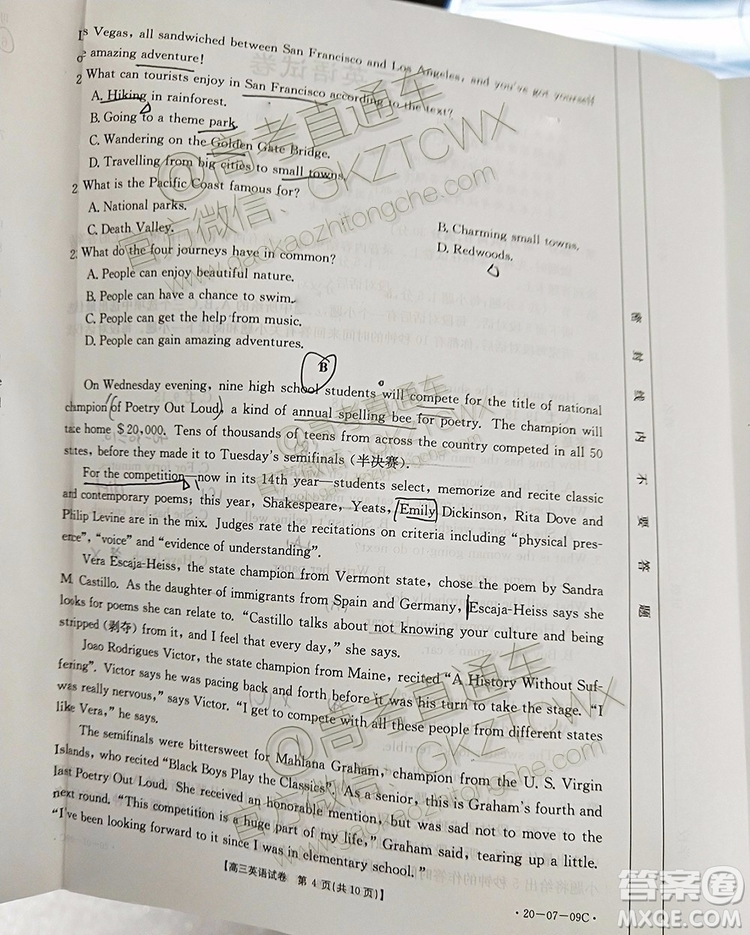 s Vegas, all sandwiched between San Francisco and Los Angeles, and you've got yourself
e amazing adventure!
2 What can tourists enjoy in San Francisco according to the text?
A. Hiking in rainforest.
B. Going to a theme park.
C. Wandering on the Golden Gate Bridge.
D. Travelling from big cities to small towns.
2 What is the Pacific Coast famous for?
A. National parks.
B. Charming small towns.
C. Death Valley.
D. Redwoods.
2 What do the four journeys have in common?
A. People can enjoy beautiful nature.
B. People can have a chance to swim.
C. People can get the help from music.
D. People can gain amazing adventures.
B
On Wednesday evening, nine high school students will compete for the title of national
champion of Poetry Out Loud, a kind of annual spelling bee for poetry. The champion will
take home $20,000. Tens of thousands of teens from across the country competed in all 50
states, before they made it to Tuesday's semifinals (半决赛).
For the competition—now in its 14th year—students select, memorize and recite classic
and contemporary poems; this year, Shakespeare, Yeats, Emily Dickinson, Rita Dove and
Philip Levine are in the mix. Judges rate the recitations on criteria including "physical pres-
ence", "voice" and "evidence of understanding".
Vera Escaja-Heiss, the state champion from Vermont state, chose the poem by Sandra
M. Castillo. As the daughter of immigrants from Spain and Germany, Escaja-Heiss says she
looks for poems she can relate to. "Castillo talks about not knowing your culture and being
stripped (剥夺) from it, and I feel that every day," she says.
Joao Rodrigues Victor, the state champion from Maine, recited "A History Without Suf-
fering". Victor says he was pacing back and forth before it was his turn to take the stage. "I
was really nervous," says Victor. "I get to compete with all these people from different states
like Vera," he says.
The semifinals were bittersweet for Mahlana Graham, champion from the U. S. Virgin
Islands, who recited "Black Boys Play the Classics". As a senior, this is Graham's fourth and
last Poetry Out Loud. She received an honorable mention, but was sad not to move to the
next round. "This competition is a huge part of my life," Graham said, tearing up a little.
"I've been looking forward to it since I was in elementary school."
【高三英语试卷 第 4 页(共 10 页)】
·20-07-09C·
密封线内不要答题
@高考直通车
官方微信：GKZTCWX
www.gaokaozhitongche.com
@高考直通车
官方微信：GKZTCWX
www.gaokaozhitongche.com
答案圈
MXQE.COM